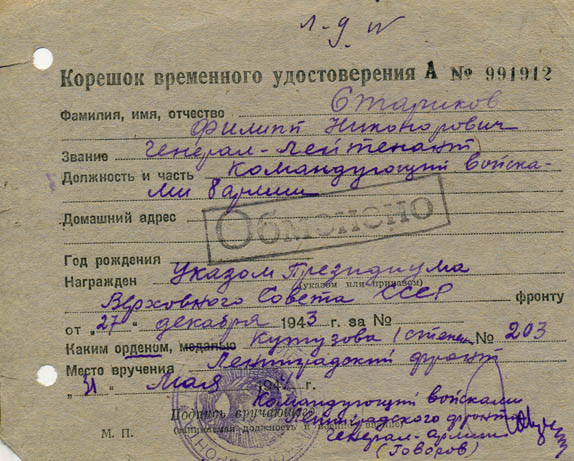 л-д IV
Корешок временного удостоверения А № 991912
Фамилия, имя, отчество Стариков
Филипп Никонорович
Звание Генерал-лейтенант
Должность и часть Командующий войска-
ми 8 армии
Домашний адрес
Обменено
Год рождения
Награжден Указом Президиума
(указом или приказом)
Верховного Совета СССР фронту
от „27" декабря 1943 г. за №
Каким орденом, медалью Кутузова I степен № 203
Место вручения Ленинградский фронт
„31" Мая 1944 г.
Командующий войсками
Подпись вручающего Ленинградского фронта
(вручаемое должность и воинское звание)
М. П. генерал-армии
(Говоров)